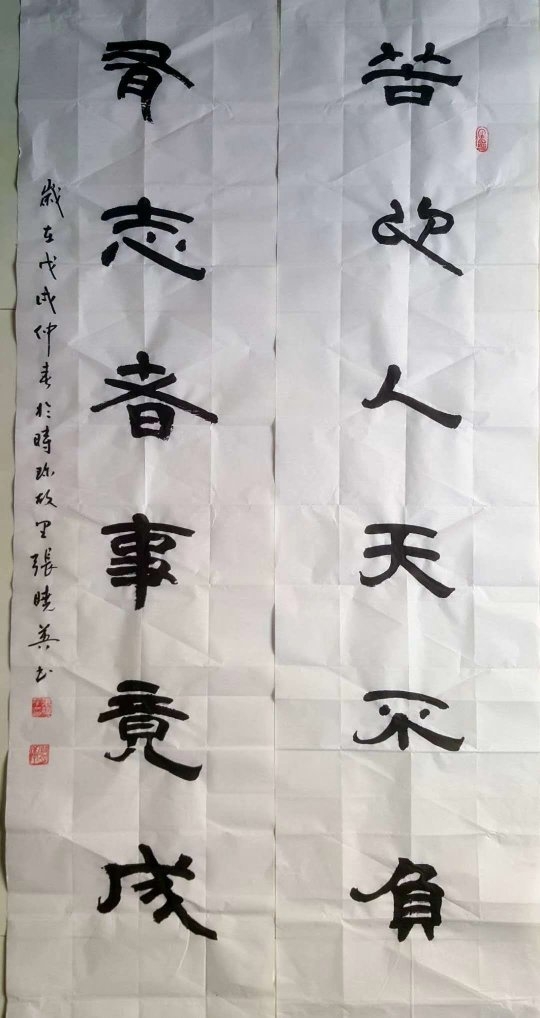 苦心人天不負
有志者事竟成
歲在戊戌仲春於時珍故里張曉英書